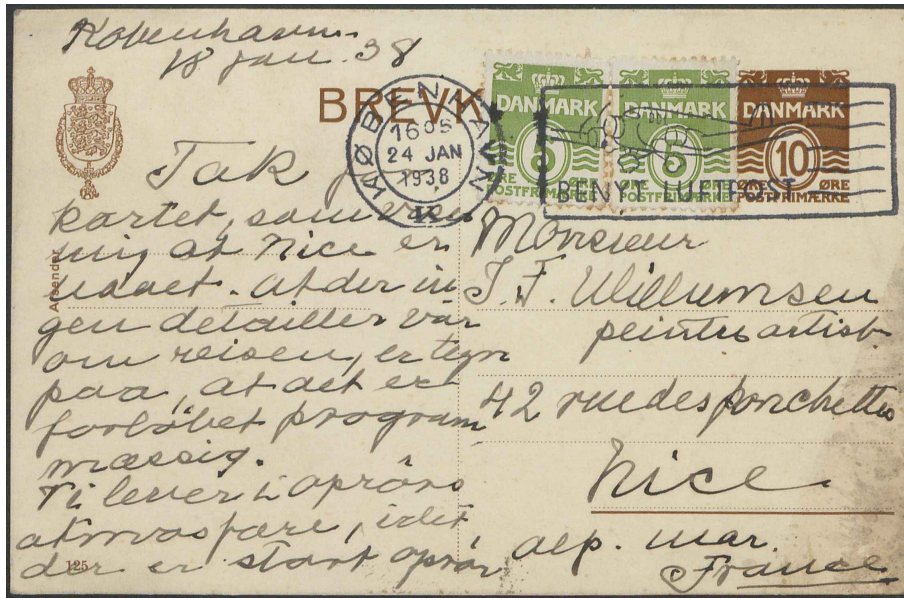 København
18 Jan. 38
BREVK
KØBENHAVN
1605
24 JAN
1938
K
DANMARK
5
ØRE
POSTFRIMÆRKE
DANMARK
5
ØRE
POSTFRIMÆRKE
DANMARK
10
ØRE ØRE
POSTFRIMÆRKE
BENYT LUFTPOST
Afsender
Tak
kortet, som viser
mig at Nice er
naaet. At der in
gen detailler var
om reisen, er tyn
paa, at det er
forløbet program
mæssig.
Vi lever i oprørs
atmosfære, idet
der er stort oprør
125
Monsieur
J. F. Willumsen
peintre artist
42 rue des ponchettes
Nice
alp. mar.
France